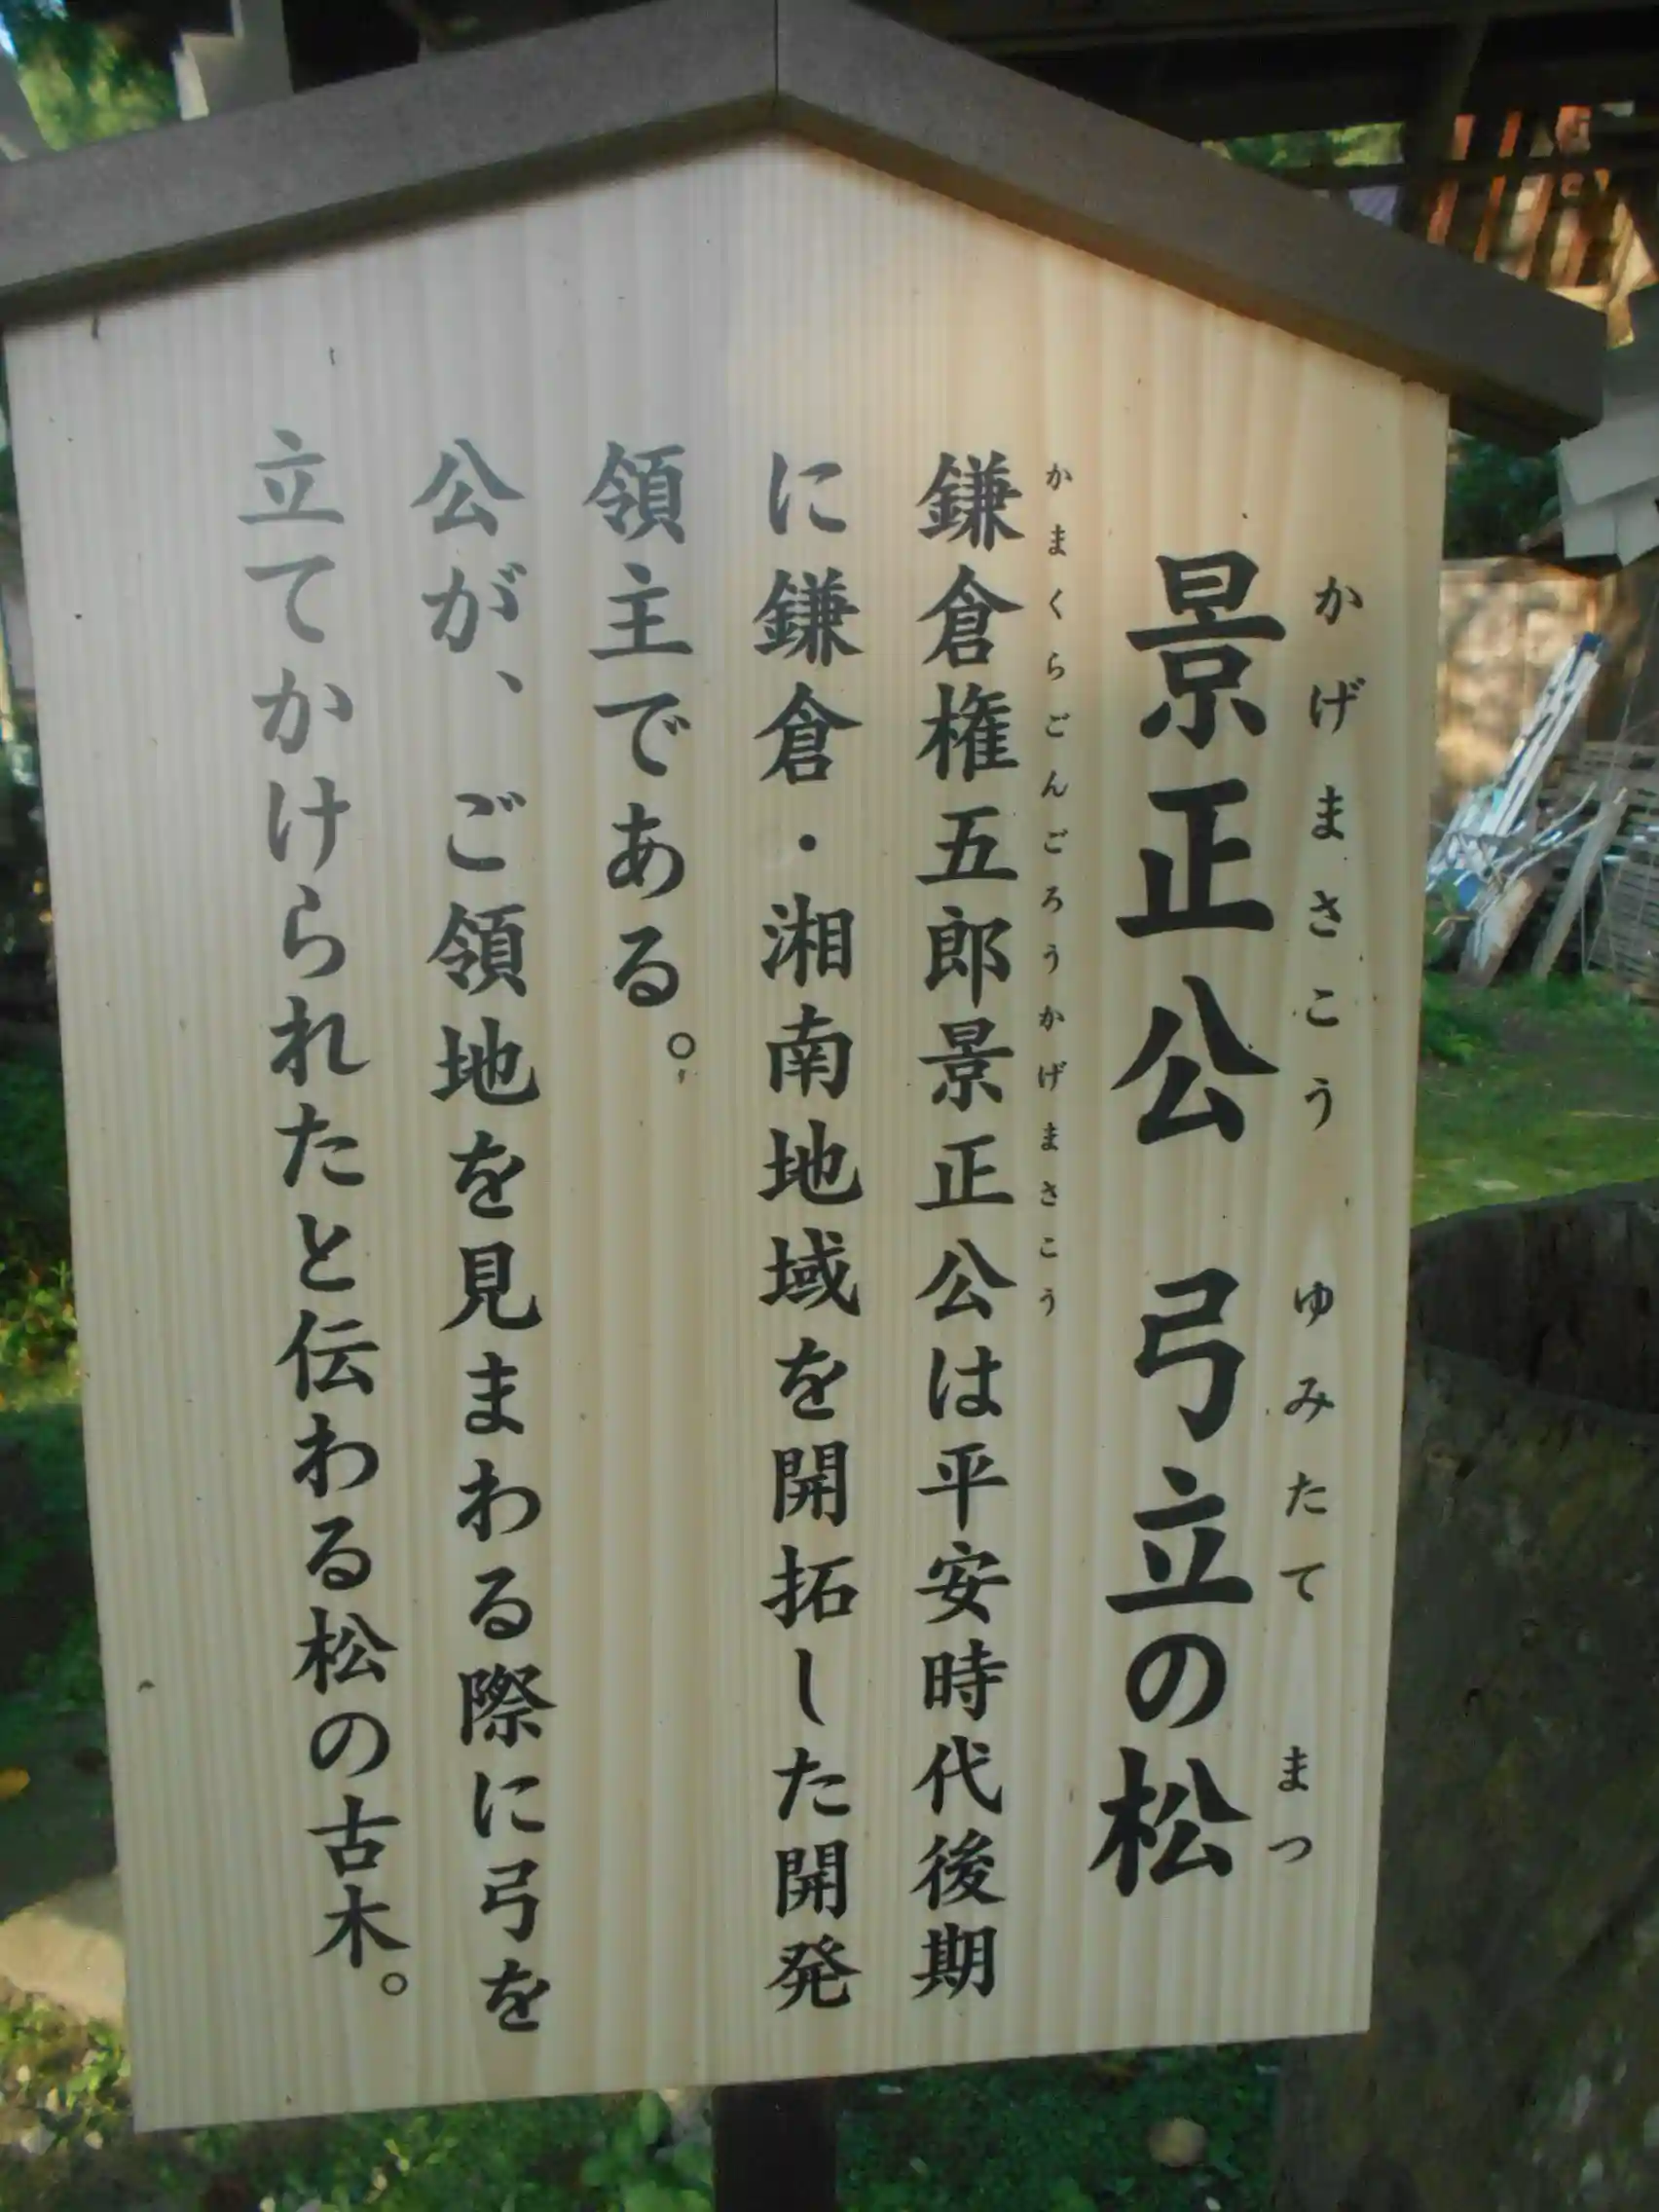 かげまさこう ゆみたて まつ
景正公 弓立の松
かまくらごんごろうかげまさこう
鎌倉権五郎景正公は平安時代後期
に鎌倉・湘南地域を開拓した開発
領主である。
公が、ご領地を見まわる際に弓を
立てかけられたと伝わる松の古木。